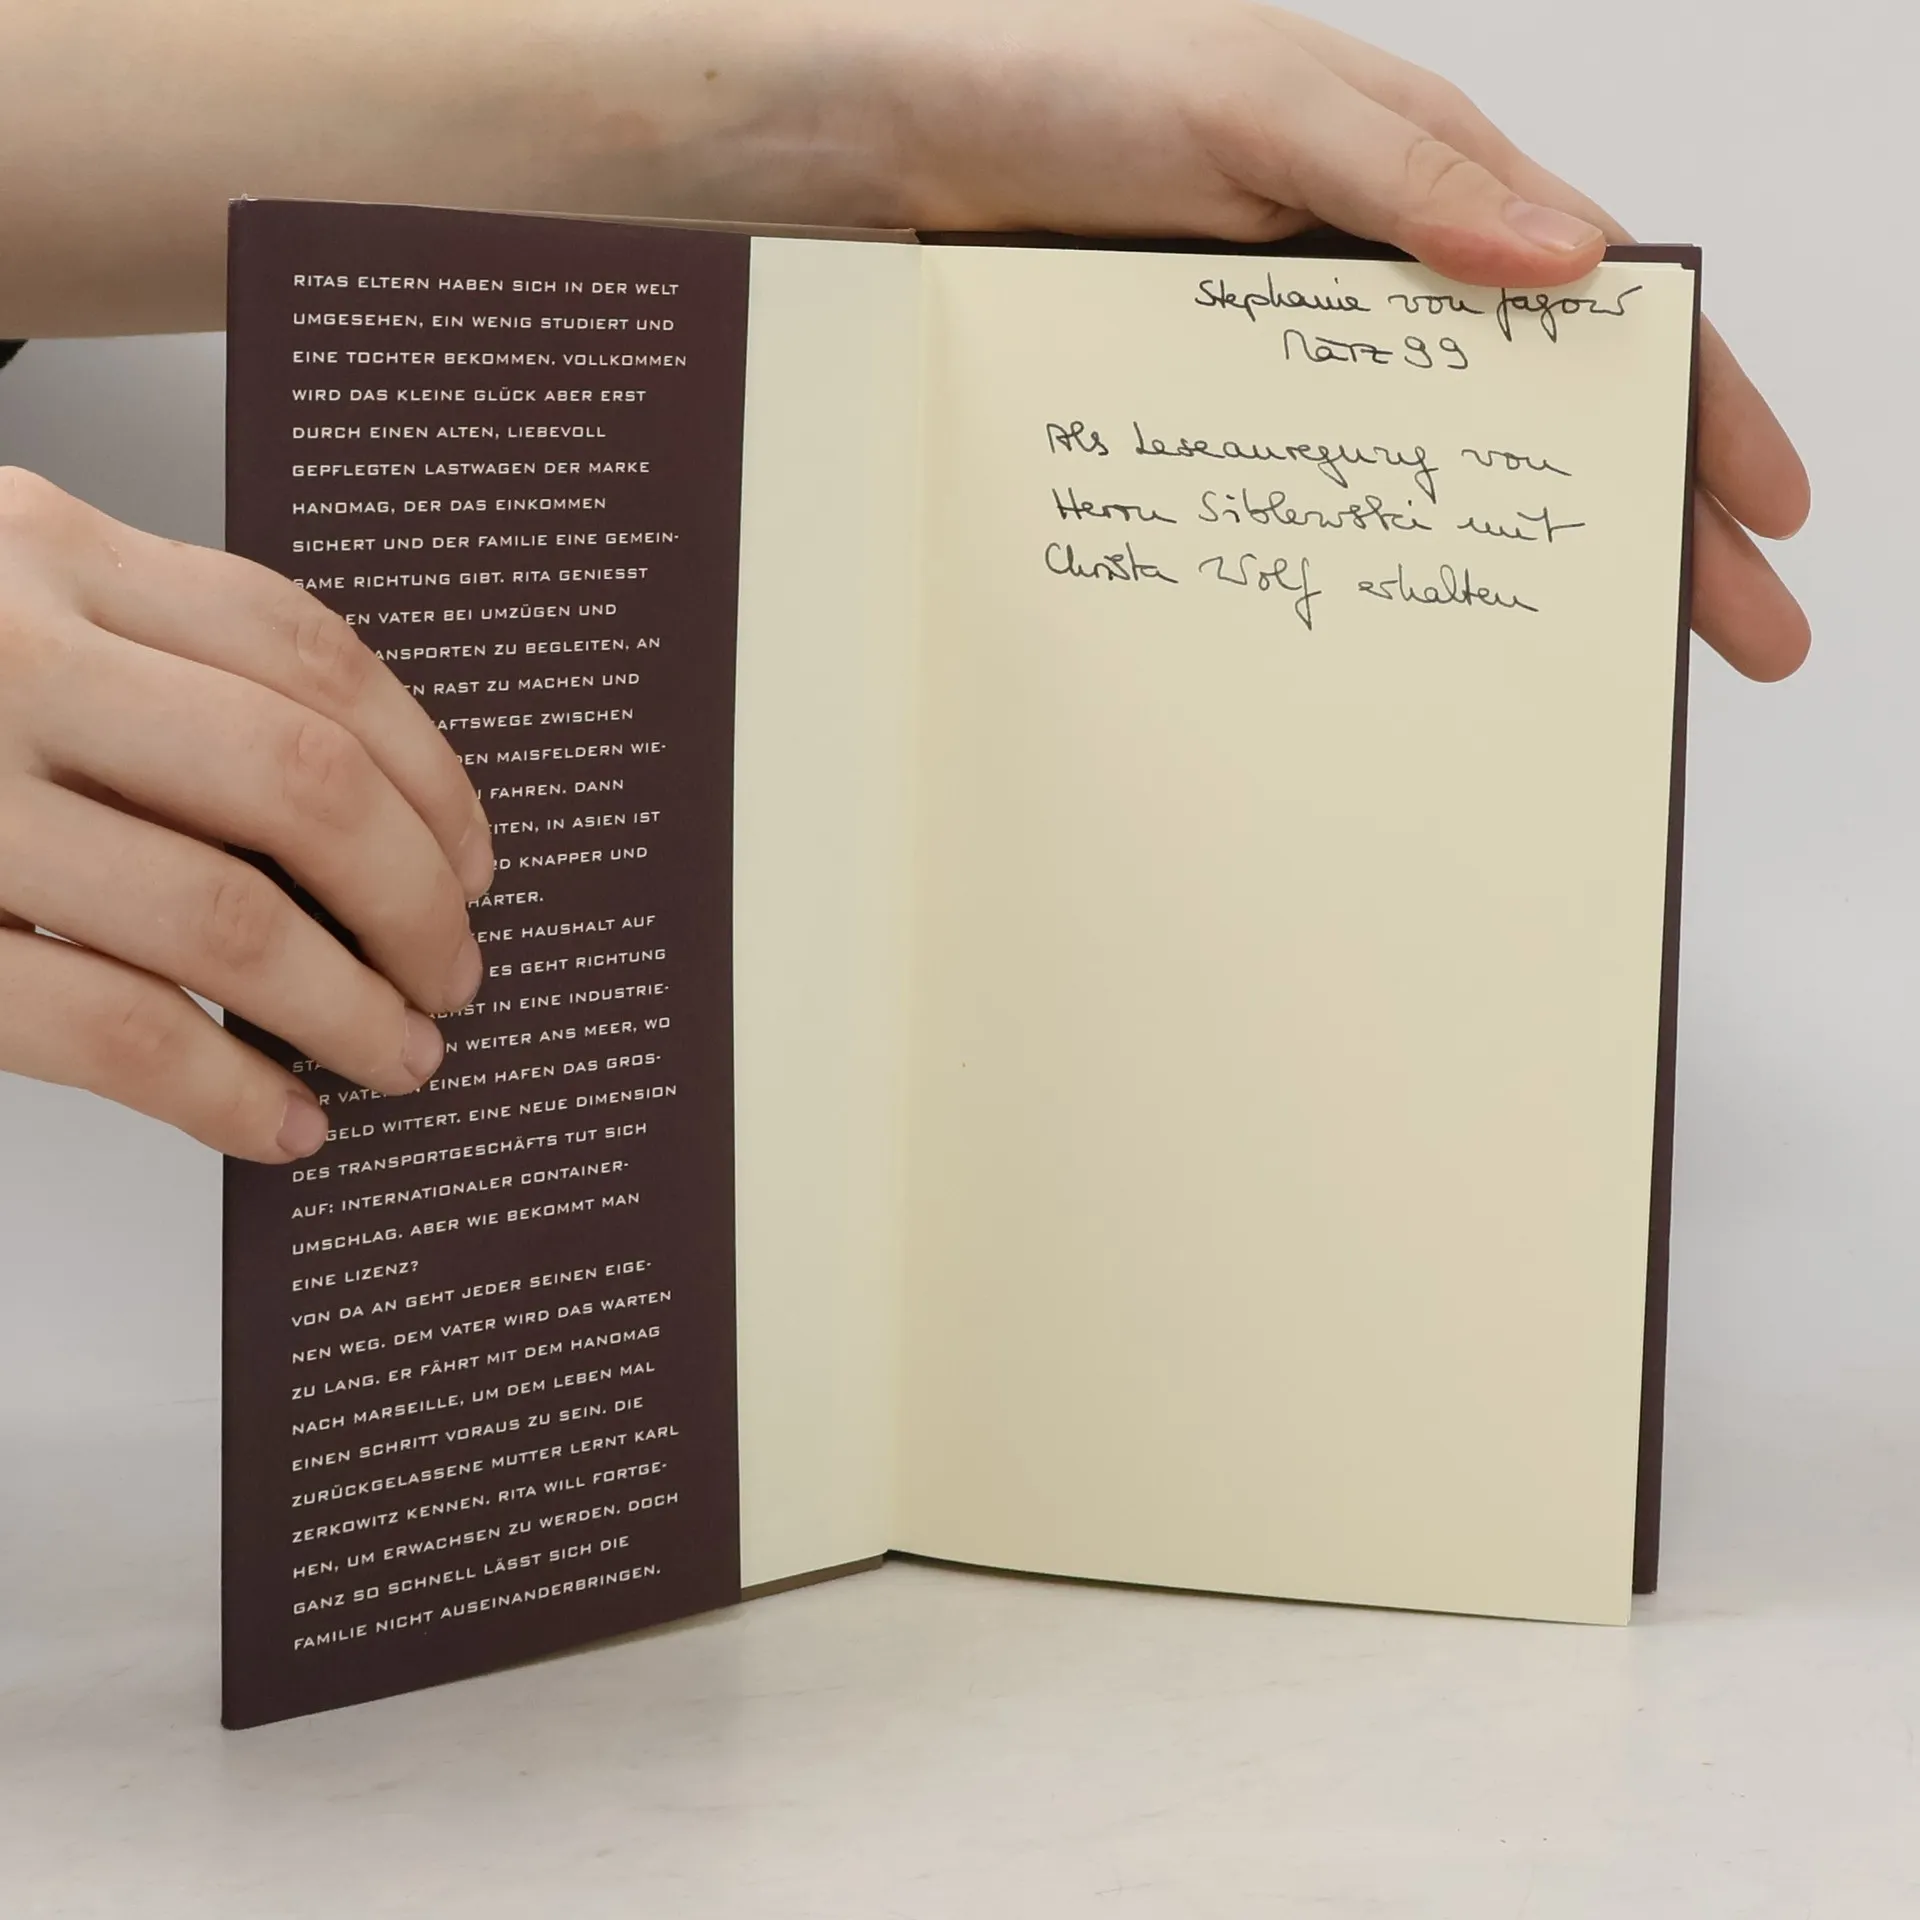 RITAS ELTERN HABEN SICH IN DER WELT
UMGESEHEN, EIN WENIG STUDIERT UND
EINE TOCHTER BEKOMMEN. VOLLKOMMEN
WIRD DAS KLEINE GLÜCK ABER ERST
DURCH EINEN ALTEN, LIEBEVOLL
GEPFLEGTEN LASTWAGEN DER MARKE
HANOMAG, DER DAS EINKOMMEN
SICHERT UND DER FAMILIE EINE GEMEIN-
SAME RICHTUNG GIBT. RITA GENIESST
VATER BEI UMZÜGEN UND
ZU BEGLEITEN, AN
RAST ZU MACHEN UND
ZWISCHEN
DEN MAISFELDERN WIE-
FAHREN. DANN
IN ASIEN IST
KNAPPER UND
HÄRTER.
HAUSHALT AUF
ES GEHT RICHTUNG
IN EINE INDUSTRIE-
WEITER ANS MEER, WO
VATER EINEM HAFEN DAS GROS-
GELD WITTERT. EINE NEUE DIMENSION
DES TRANSPORTGESCHÄFTS TUT SICH
AUF: INTERNATIONALER CONTAINER-
UMSCHLAG. ABER WIE BEKOMMT MAN
EINE LIZENZ?
VON DA AN GEHT JEDER SEINEN EIGE-
NEN WEG. DEM VATER WIRD DAS WARTEN
ZU LANG. ER FÄHRT MIT DEM HANOMAG
NACH MARSEILLE, UM DEM LEBEN MAL
EINEN SCHRITT VORAUS ZU SEIN. DIE
ZURÜCKGELASSENE MUTTER LERNT KARL
ZERKOWITZ KENNEN. RITA WILL FORTGE-
HEN, UM ERWACHSEN ZU WERDEN. DOCH
GANZ SO SCHNELL LÄSST SICH DIE
FAMILIE NICHT AUSEINANDERBRINGEN.
Stephanie von Jagow
März 99
Als Leseanregung von
Herrn Siblewski mit
Christa Wolf erhalten